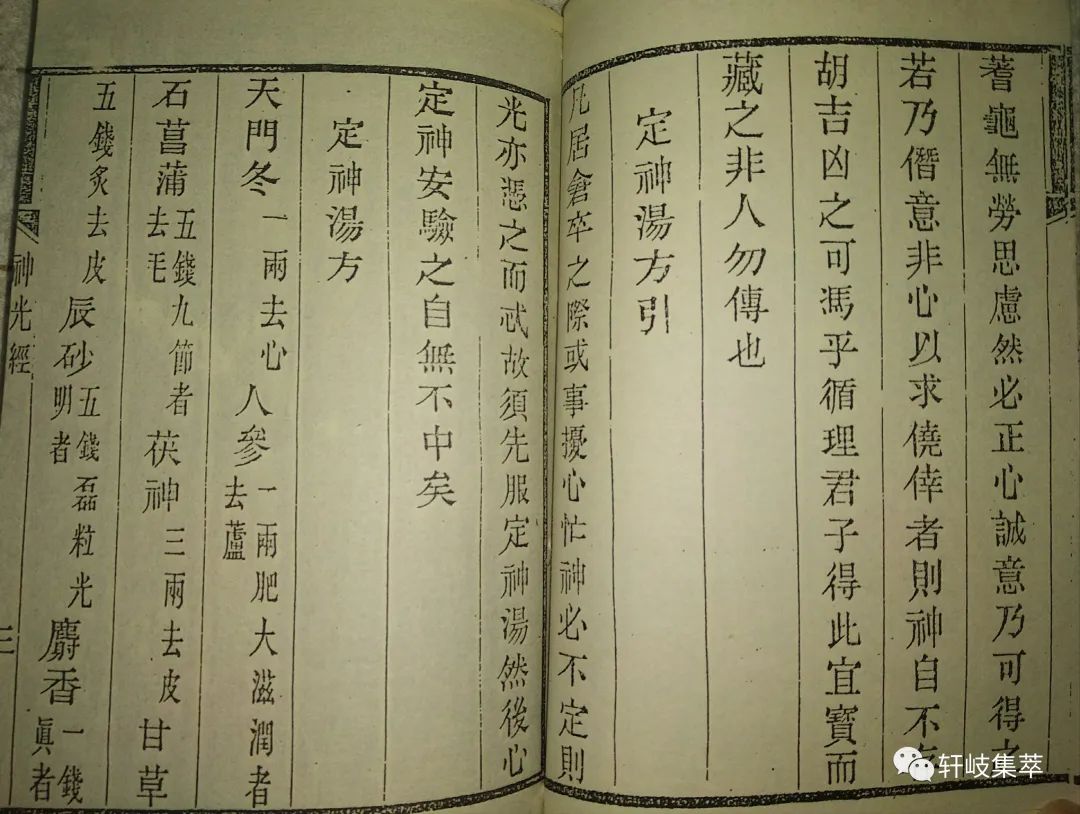 蓍龜無勞思慮然必正心誠意乃可得之
若乃僭意非心以求僥倖者則神自不
胡吉凶之可馮乎循理君子得此宜寶而
藏之非人勿傳也
定神湯方引
凡居倉卒之際或事擾心忙神必不定則
光亦憑之而忒故須先服定神湯然後心
定神安驗之自無不中矣
定神湯方
天門冬一兩去心人參一兩肥大滋潤者去蘆
石菖蒲五錢九節者去毛茯神三兩去皮甘草
五錢炙去皮辰砂五錢磊粒光明者麝香一錢眞者
神光經
三
轩岐集萃